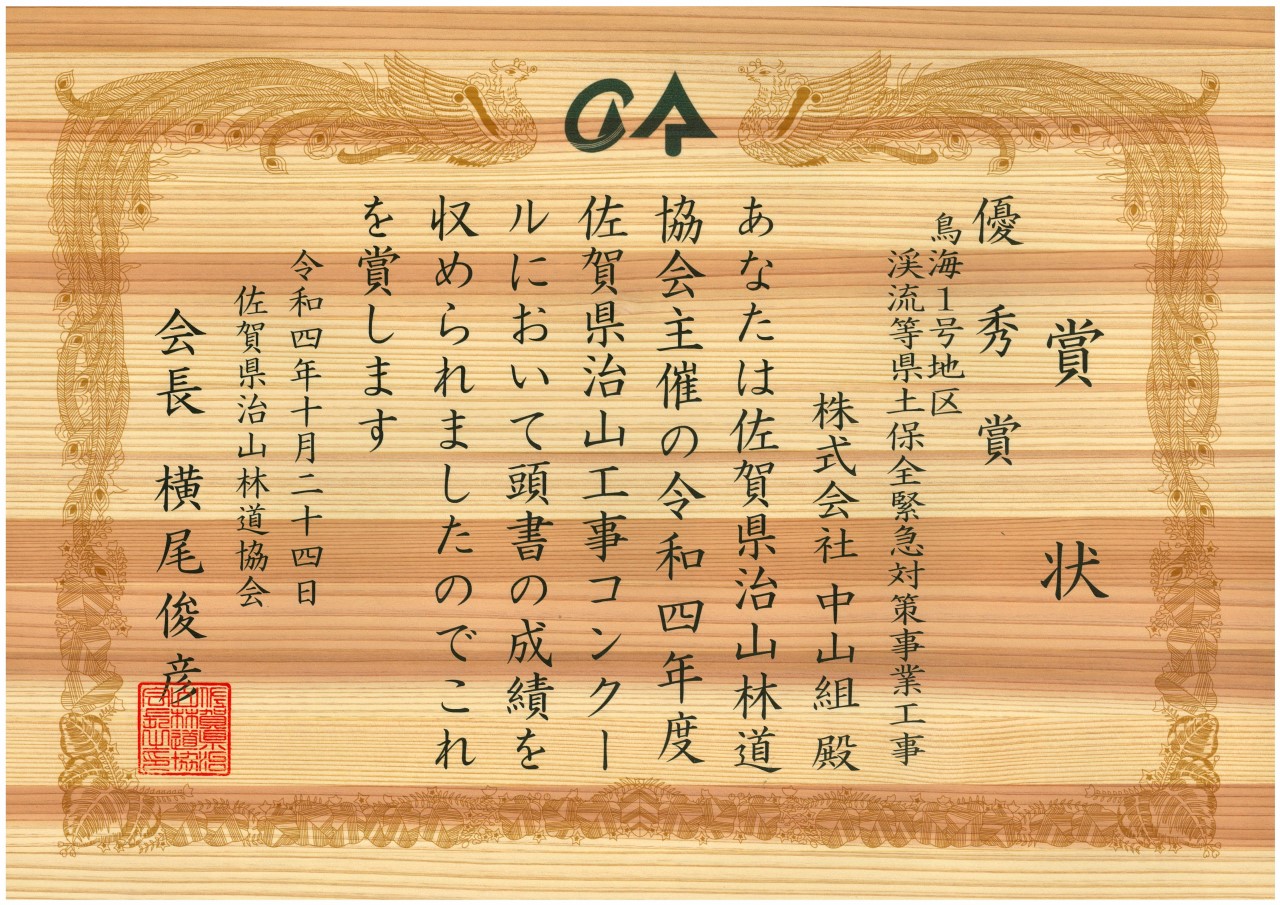 賞状
優秀賞
鳥海1号地区
渓流等県土保全緊急対策事業工事
株式会社 中山組 殿
あなたは佐賀県治山林道
協会主催の令和四年度
佐賀県治山工事コンクー
ルにおいて頭書の成績を
収められましたのでこれ
を賞します
令和四年十月二十四日
佐賀県治山林道協会
会長 横尾俊彦